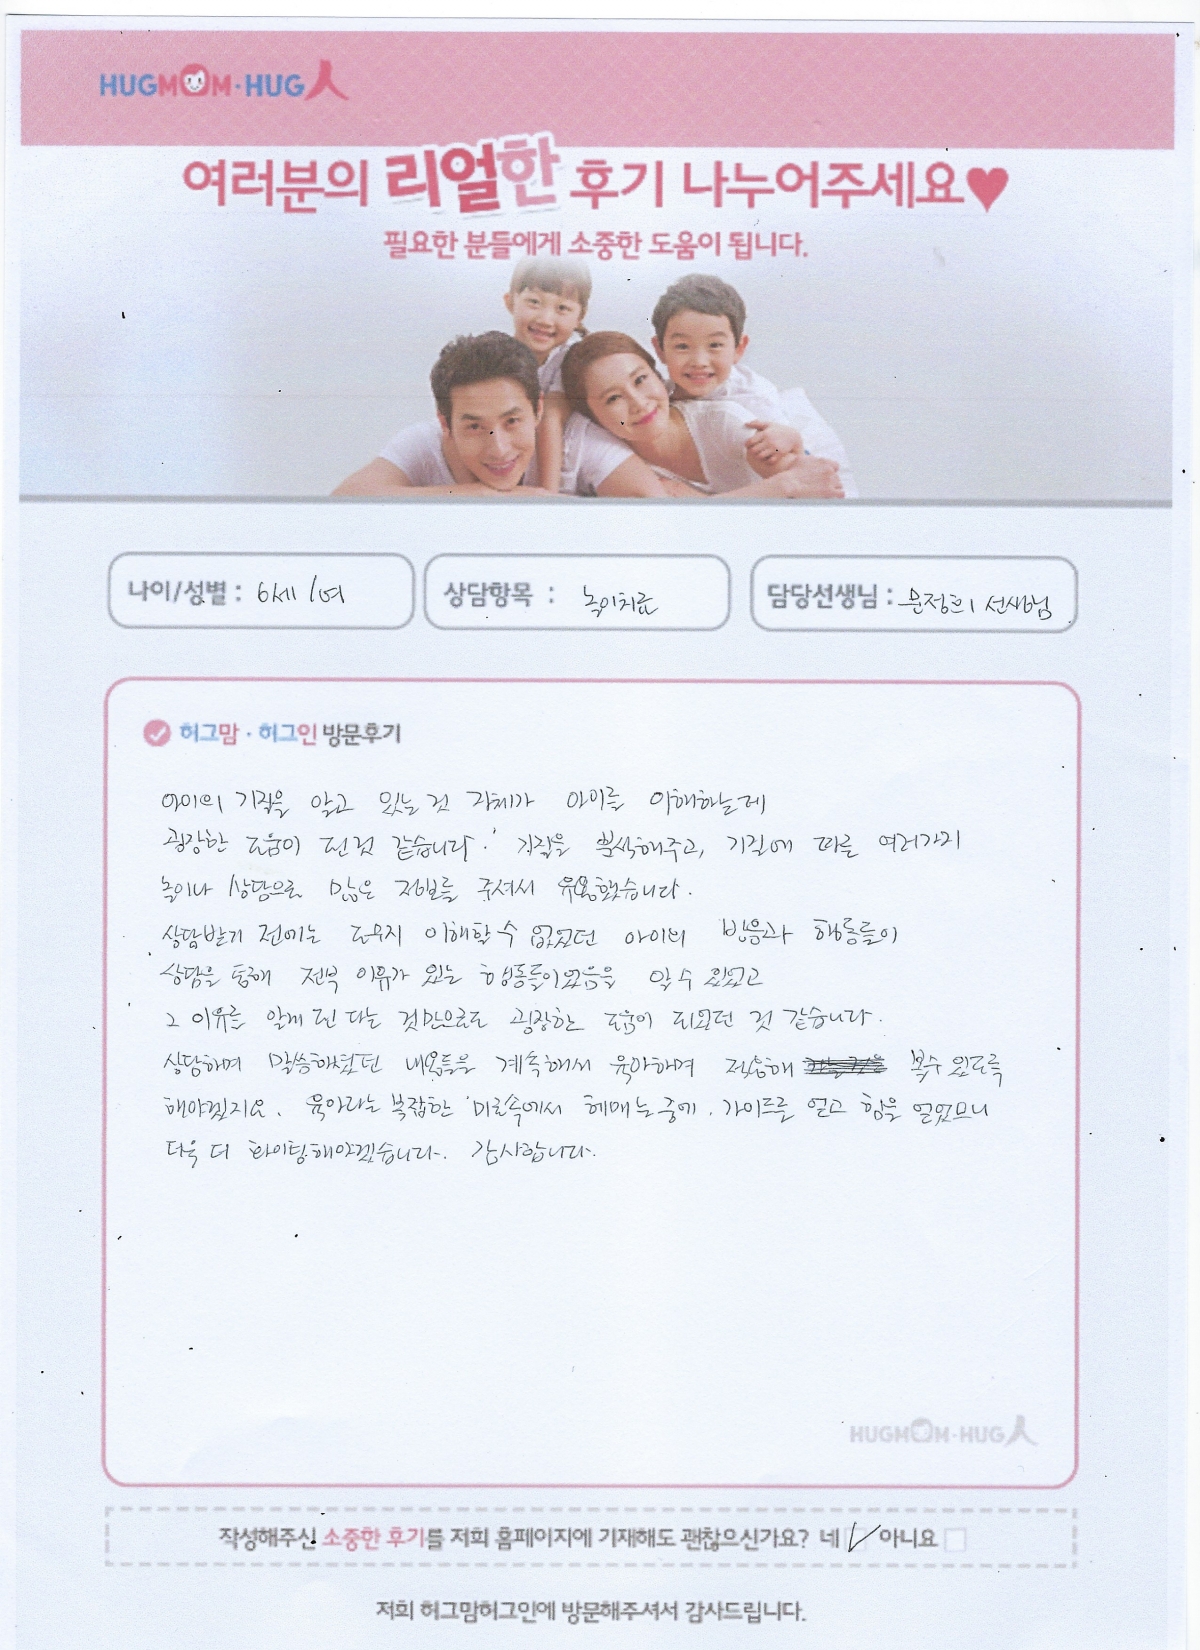 HUGMOM·HUG人
여러분의 리얼한 후기 나누어주세요♥
필요한 분들에게 소중한 도움이 됩니다.
나이/성별 : 6세 / 여
상담항목 : 놀이치료
담당선생님 : 문정희 선생님
허그맘 · 허그인 방문후기
아이의 기질을 알고 있는 것 자체가 아이를 이해하는데
굉장한 도움이 된 것 같습니다. 기질을 분석해주고, 기질에 따른 여러가지
놀이나 상담으로 많은 정보를 주셔서 유용했습니다.
상담받기 전에는 도무지 이해할 수 없었던 아이의 반응과 행동들이
상담을 통해 전부 이유가 있는 행동들이었음을 알 수 있었고
그 이유를 알게 된 다는 것만으로도 굉장한 도움이 되었던 것 같습니다.
상담하며 말씀하셨던 내용들을 계속해서 육아하며 적용해 볼수 있도록
해야겠지요. 육아라는 복잡한 미로속에서 헤매는 중에. 가이드를 얻고 힘을 얻었으니
더욱 더 화이팅해야겠습니다. 감사합니다.
HUGMOM·HUG人
작성해주신 소중한 후기를 저희 홈페이지에 기재해도 괜찮으신가요? 네 ✓ 아니요 □
저희 허그맘허그인에 방문해주셔서 감사드립니다.